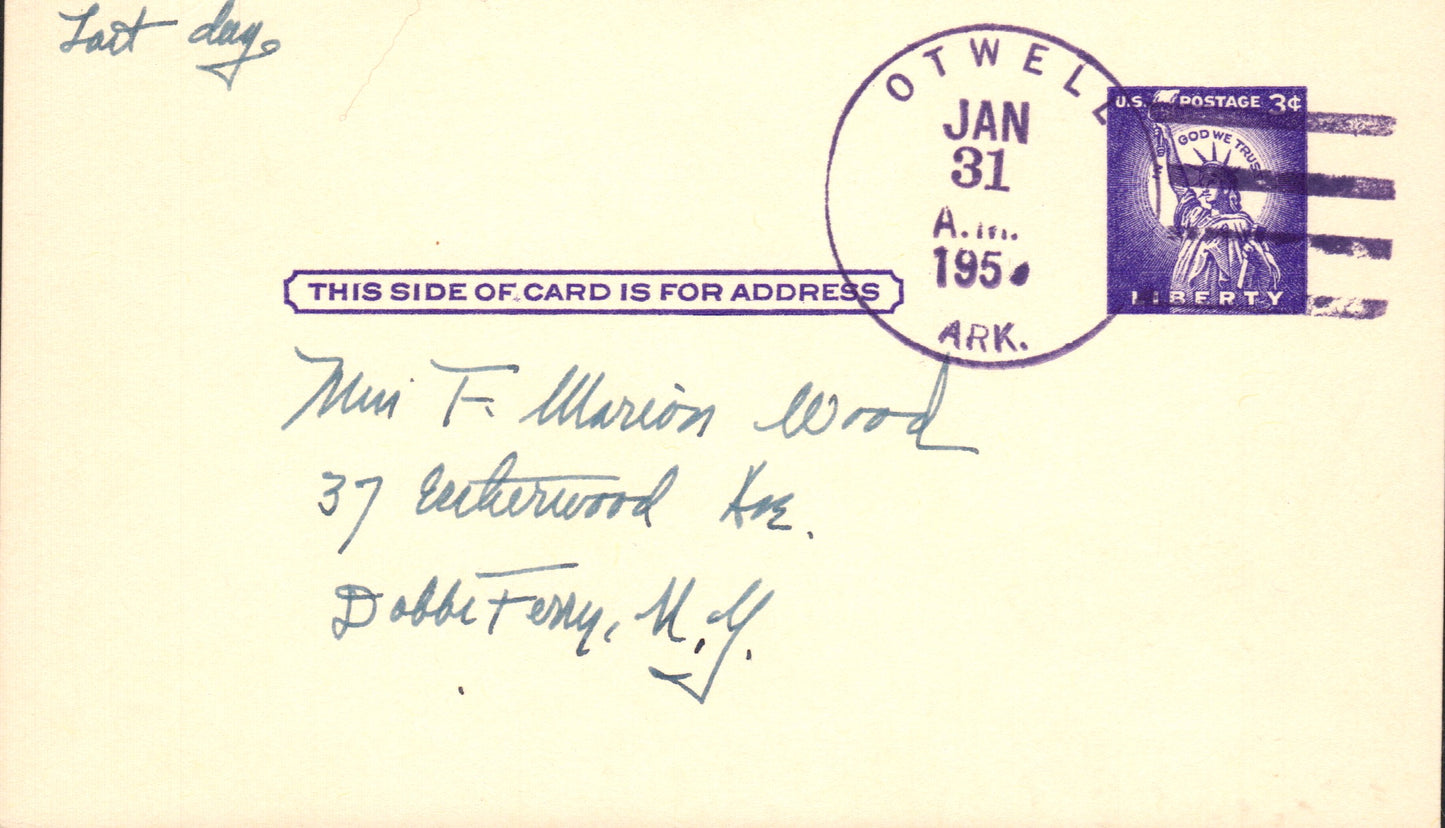 Last day.
OTWELL
JAN
31
A.M.
195
ARK.
U.S. POSTAGE 3¢
GOD WE TRUS
LIBERTY
THIS SIDE OF CARD IS FOR ADDRESS
Miss F. Marion Wood
37 Estherwood Ave.
Dobbs Ferry, N.Y.